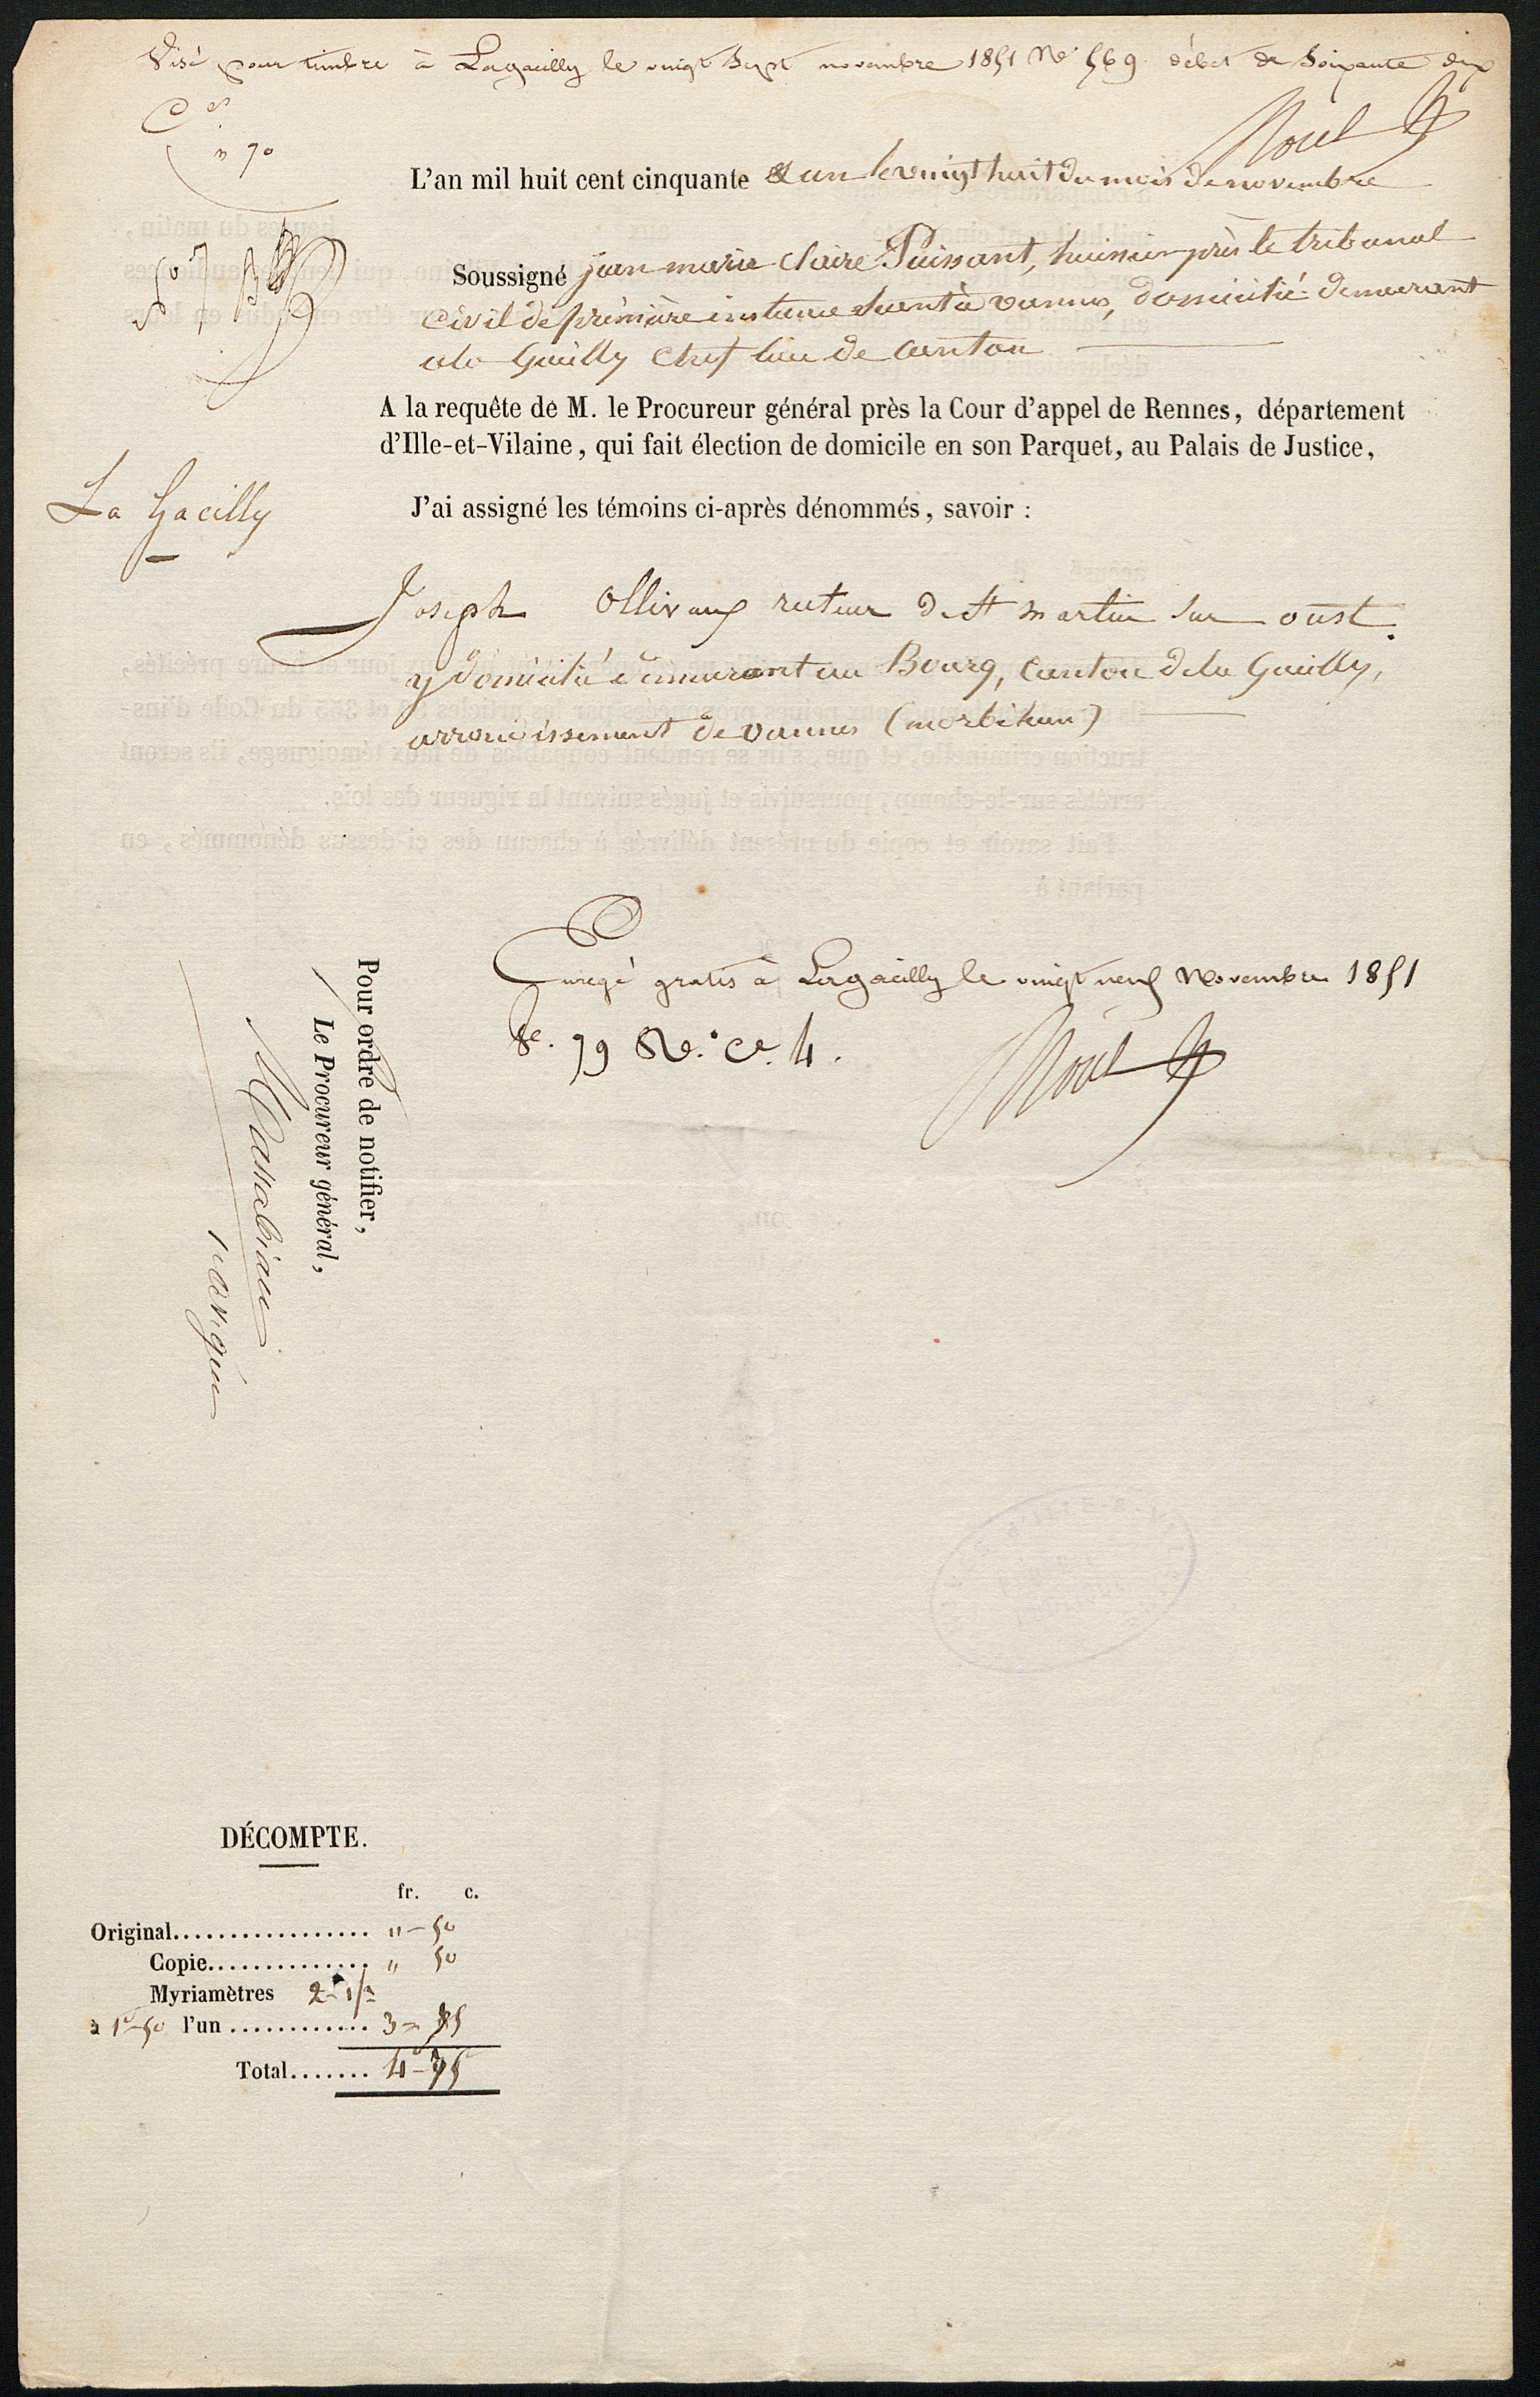 Visé pour timbre à Lagacilly le vingt sept novembre 1851 No 569 débet de Soixante dix
Ces
" 70
Noul
L'an mil huit cent cinquante & un le vingt huit du mois de novembre
Soussigné jean marie Claire Puissant, huissier près le tribunal
civil de première instance séant à vannes, domicilié demeurant
ala Gacilly Chef lieu de Canton
A la requête de M. le Procureur général près la Cour d'appel de Rennes, département
d'Ille-et-Vilaine, qui fait élection de domicile en son Parquet, au Palais de Justice,
La Gacilly
J'ai assigné les témoins ci-après dénommés, savoir :
Joseph Ollivaux recteur de St martin sur oust.
y domicilié demeurant au Bourg, Canton dela Gacilly,
arrondissement de vannes (morbihan)
Enregé gratis à Lagacilly le vingt neuf Novembre 1851
fo. 79 Ro. Ce. 4.
Noul
Pour ordre de notifier,
Le Procureur général,
DÉCOMPTE.
fr. c.
Original.................. " - 50
Copie............... " 50
Myriamètres 2 - 1/2
à 1f-50 l'un ............. 3 = 75
Total....... 4 - 75